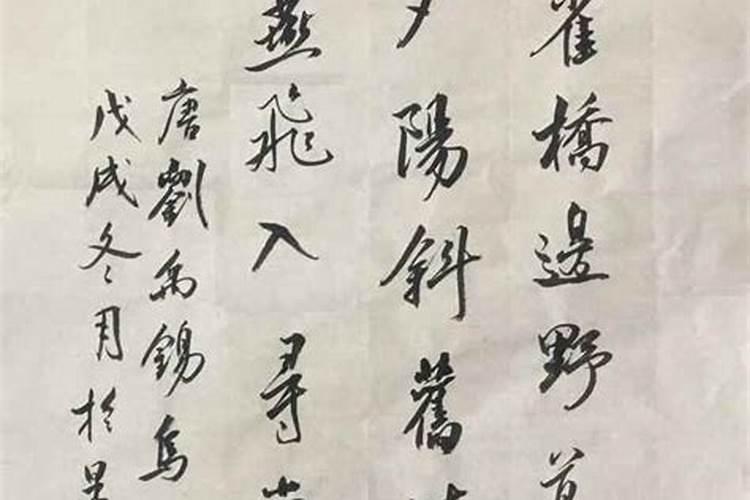 雀橋邊野草
夕陽斜舊時
燕飛入尋常
唐劉禹錫烏
戊戌冬月於